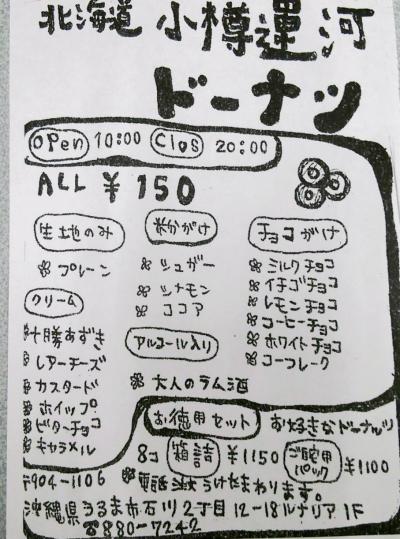 北海道 小樽運河
ドーナツ
open 10:00 Clos 20:00
ALL ¥150
生地のみ
プレーン
粉がけ
シュガー
シナモン
ココア
チョコがけ
ミルクチョコ
イチゴチョコ
レモンチョコ
コーヒーチョコ
ホワイトチョコ
コーンフレーク
クリーム
十勝あずき
レアーチーズ
カスタード
ホイップ
ビターチョコ
キャラメル
アルコール入り
大人のラム酒
お徳用セット お好きなドーナッツ
8コ 箱詰 ¥1150 ご家庭用パック ¥1100
電話注文うけたまわります。
〒904-1106
沖縄県うるま市石川2丁目12-18ルナリア1F
☎880-7242